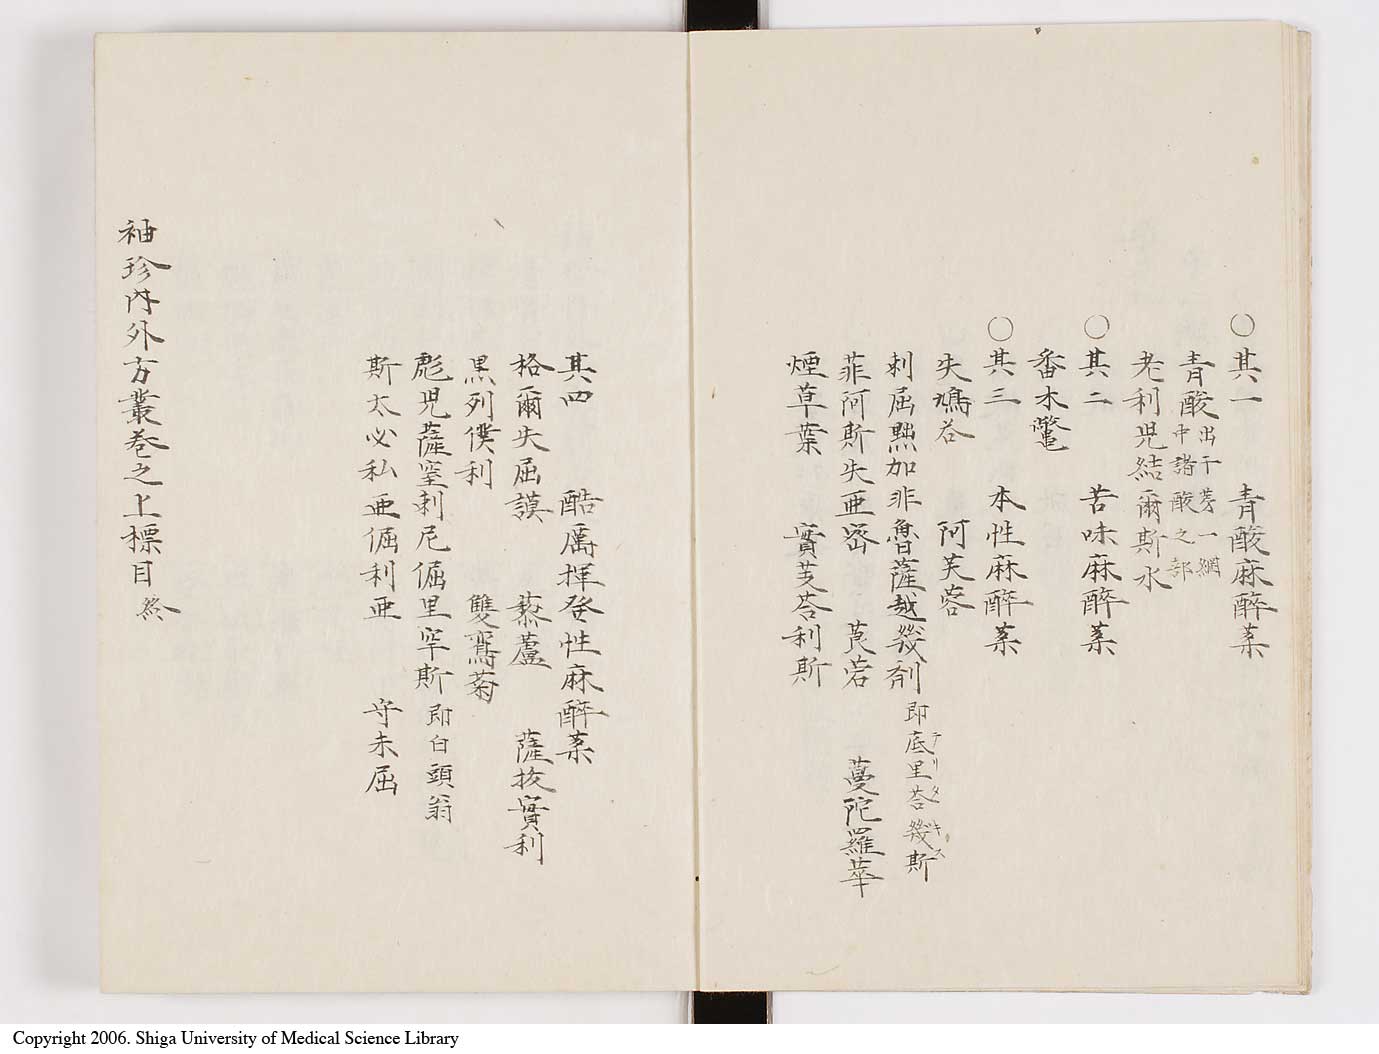 ○其一　青酸麻醉薬
青酸 出于第一綱中諸酸之部
老利児結爾斯水
○其二　苦味麻醉薬
番木鼈
○其三　本性麻醉薬
失鳩荅　阿芙蓉
刺屈黙加非魯薩越幾剤 即底里荅幾斯 テリタキス
菲阿斯失亜密　莨菪　蔓陀羅華
煙草葉　實芰荅利斯
其四　酷厲揮発性麻醉薬
格爾失屈謨　藜蘆　薩抜實利
黒列僕利　雙鸞菊
彪児薩窒刺尼倔里罕斯 即白頭翁
斯太必私亜倔利亜　守未屈
袖珍内外方叢巻之上標目 終
Copyright 2006. Shiga University of Medical Science Library